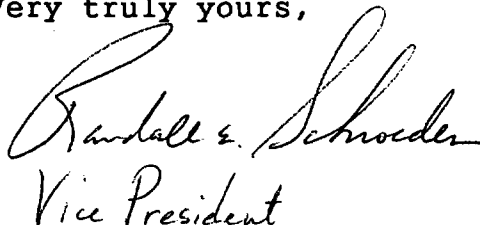 Very truly yours,
Randall E. Schroeder
Vice President